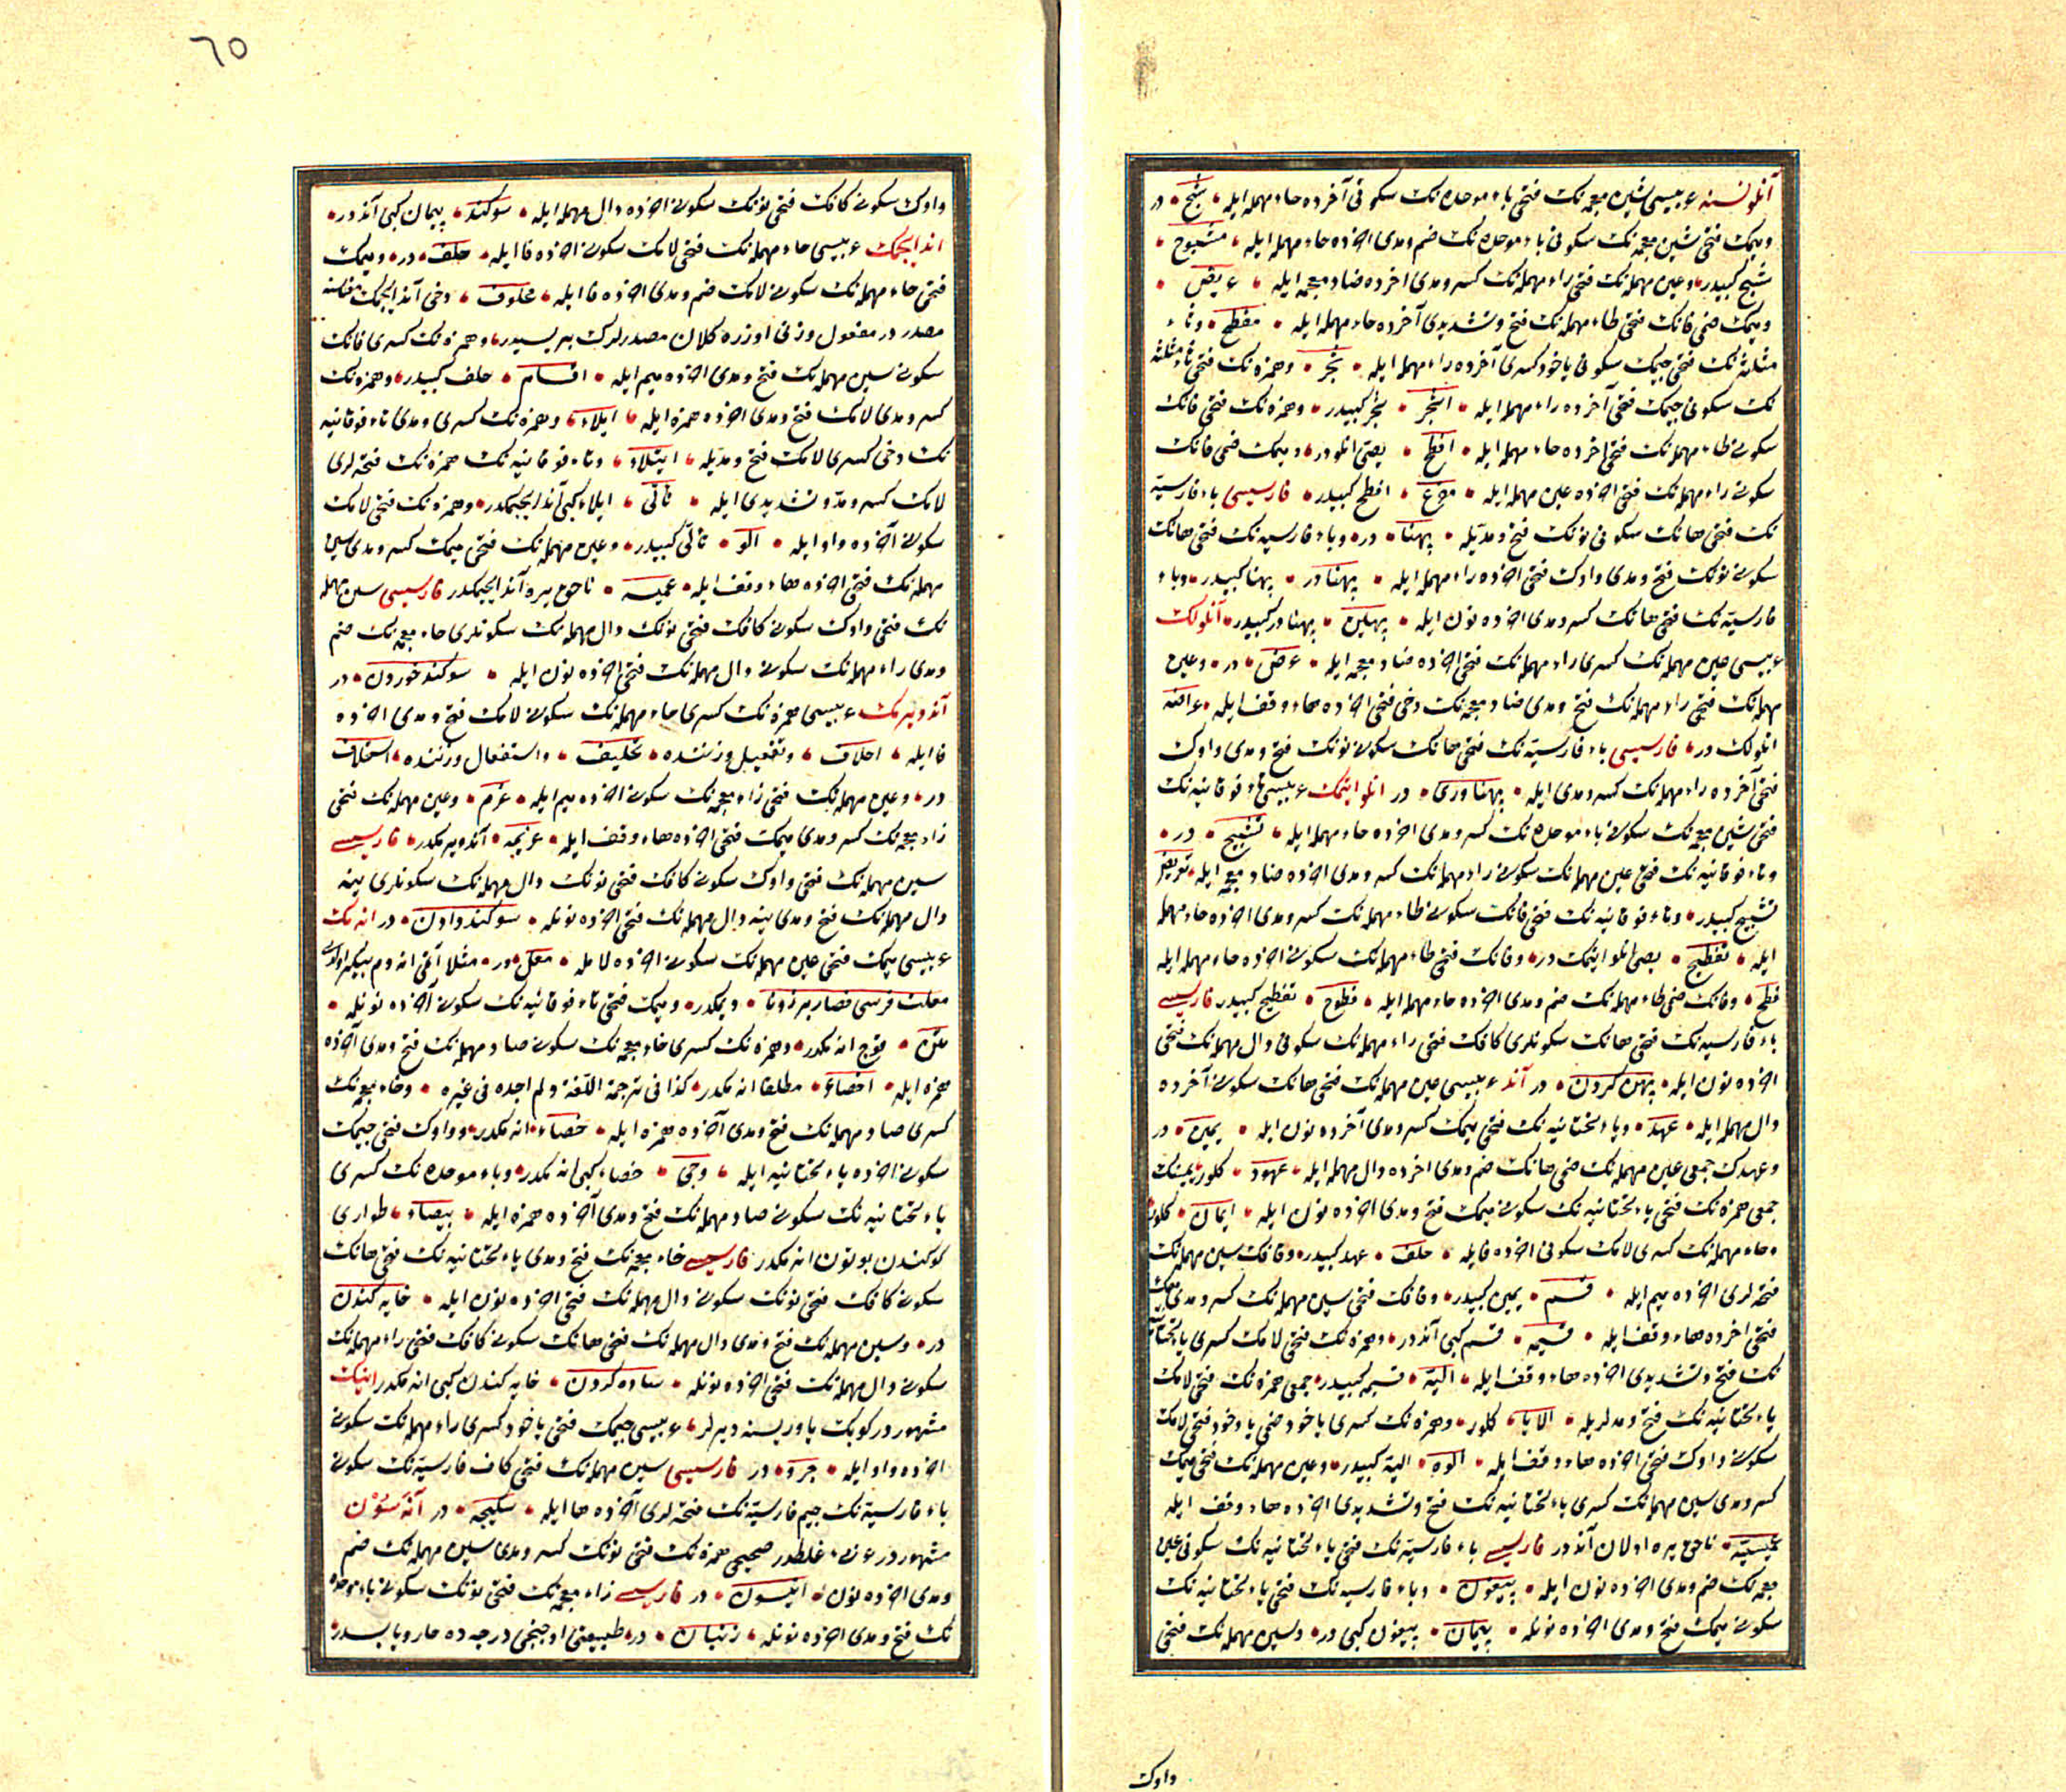 آنلو نسنه عربیسی شین معجمه‌نک فتحی باء موحده‌نک سکونی آخرده حاء مهمله ایله شبح در
ومیمک فتحی شین معجمه‌نک سکونی باء موحده‌نک ضم ومدی اخرده حاء مهمله ایله مشبوح
شبح کبیدر وعین مهمله‌نک فتحی راء مهمله‌نک کسر ومدی اخرده ضاد معجمه ایله عریض
ومیمک ضمی فانک فتحی طاء مهمله‌نک فتح وتشدیدی آخرده حاء مهمله ایله مفطح وثاء
مثلثه‌نک فتحی جیمک سکونی یاخود کسری آخرده راء مهمله ایله ثجر وهمزه‌نک فتحی ثاء مثلثه
نک سکونی جیمک فتحی آخرده راء مهمله ایله اثجر ثجر کبیدر وهمزه‌نک فتحی فانک
سکونی طاء مهمله‌نک فتحی اخرده حاء مهمله ایله افطح یصی انلودر ومیمک ضمی فانک
سکونی راء مهمله‌نک فتحی اخرده عین مهمله ایله افطح کبیدر فارسیسی باء فارسیه
نک فتحی هانک سکونی نونک فتح ومدیله پهنا در وباء فارسیه‌نک فتحی هانک
سکونی نونک فتح ومدی واوک فتحی اخرده راء مهمله ایله پهناور پهنا کبیدر وباء
فارسیه‌نک فتحی هانک کسر ومدی اخرده نون ایله پهین پهناور کبیدر آنلولک
عربیسی عین مهمله‌نک کسری راء مهمله‌نک فتحی اخرده ضاد معجمه ایله عرض در وعین
مهمله‌نک فتحی راء مهمله‌نک فتح ومدی ضاد معجمه‌نک دخی فتحی اخرده هاء وقف ایله عراضه
انلولک در فارسیسی باء فارسیه‌نک فتحی هانک سکونی نونک فتح ومدی واوک
فتحی آخرده راء مهمله‌نک کسر ومدی ایله پهناوری در انلو ایتمک عربیسی تاء فوقانیه‌نک
فتحی شین معجمه‌نک سکونی باء موحده‌نک کسر ومدی اخرده حاء مهمله ایله تشبیح در
وتاء فوقانیه‌نک فتحی عین مهمله‌نک سکونی راء مهمله‌نک کسر ومدی اخرده ضاد معجمه ایله تعریض
تشبیح کبیدر وتاء فوقانیه‌نک فتحی فانک سکونی طاء مهمله‌نک کسر ومدی اخرده حاء مهمله
ایله تفطیح یصی انلو ایتمک در وفانک فتحی طاء مهمله‌نک سکونی اخرده حاء مهمله ایله
فطح وفانک ضمی طاء مهمله‌نک ضم ومدی اخرده حاء مهمله ایله فطوح تفطیح کبیدر فارسیسی
باء فارسیه‌نک فتحی هانک سکونلری کافک فتحی راء مهمله‌نک سکونی دال مهمله‌نک فتحی
اخرده نون ایله پهن کردن در آند عربیسی عین مهمله‌نک فتحی هانک سکونی آخرده
دال مهمله ایله عهد ویاء تحتانیه‌نک فتحی میمک کسر ومدی آخرده نون ایله یمین در
وعهدک جمعی عین مهمله‌نک ضمی هانک ضم ومدی اخرده دال مهمله ایله عهود کلور یمینک
جمعی همزه‌نک فتحی یاء تحتانیه‌نک سکونی میمک فتح ومدی اخرده نون ایله ایمان کلور
وحاء مهمله‌نک کسری لامک سکونی اخرده فایله حلف عهد کبیدر وقافک سین مهمله‌نک
فتحه‌لری اخرده میم ایله قسم یمین کبیدر وقافک فتحی سین مهمله‌نک کسر ومدی میمک
فتحی اخرده هاء وقف ایله قسیمه قسم کبی آنددر وهمزه‌نک فتحی لامک کسری یاء تحتانیه
نک فتح وتشدیدی اخرده هاء وقف ایله الیه قسیمه کبیدر جمعی همزه‌نک فتحی لامک
یاء تحتانیه‌نک فتح ومدلریله الایا کلور وهمزه‌نک کسری یاخود ضمی یاخود فتحی لامک
سکونی واوک فتحی اخرده هاء وقف ایله الوه الیه کبیدر وعین مهمله‌نک فتحی میمک
کسر ومدی سین مهمله‌نک کسری یاء تحتانیه‌نک فتح وتشدیدی اخرده هاء وقف ایله
عمیسیه ناحق یره اولان آنددر فارسیسی باء فارسیه‌نک فتحی یاء تحتانیه‌نک سکونی غین
معجمه‌نک ضم ومدی اخرده نون ایله پیغون وباء فارسیه‌نک فتحی یاء تحتانیه‌نک
سکونی میمک فتح ومدی اخرده نونله پیمان پیغون کبی در وسین مهمله‌نک فتحی
واوک
٦٥
واوک سکونی کافک فتحی نونک سکونی اخرده دال مهمله ایله سوکند پیمان کبی آنددر
اند ایچمک عربیسی حاء مهمله‌نک فتحی لامک سکونی اخرده فا ایله حلف در ومیمک
فتحی حاء مهمله‌نک سکونی لامک ضم ومدی اخرده فا ایله محلوف دخی آند ایچمک معناسنه
مصدردر مفعول وزنی اوزره کلان مصدرلرک بریسیدر وهمزه‌نک کسری قافک
سکونی سین مهمله‌نک فتح ومدی اخرده میم ایله اقسام حلف کبیدر وهمزه‌نک
کسر ومدی لامک فتح ومدی اخرده همزه ایله ایلاء وهمزه‌نک کسری ومدی تاء فوقانیه
نک دخی کسری لامک فتح ومدیله ایتلاء وتاء فوقانیه‌نک همزه‌نک فتحه‌لری
لامک کسر ومد وتشدیدی ایله تألی ایلاء کبی آند ایچمکدر وهمزه‌نک فتحی لامک
سکونی آخرده واو ایله الو تألی کبیدر وعین مهمله‌نک فتحی میمک کسر ومدی سین
مهمله‌نک فتحی اخرده هاء وقف ایله عمیسه ناحق یره آند ایچمکدر فارسیسی سین مهمله
نک فتحی واوک سکونی کافک فتحی نونک دال مهمله‌نک سکونلری خاء معجمه‌نک ضم
ومدی راء مهمله‌نک سکونی دال مهمله‌نک فتحی اخرده نون ایله سوکند خوردن در
آند ویرمک عربیسی همزه‌نک کسری حاء مهمله‌نک سکونی لامک فتح ومدی اخرده
فا ایله احلاف وتفعیل وزننده تحلیف واستفعال وزننده استحلاف
در وعین مهمله‌نک فتحی زاء معجمه‌نک سکونی اخرده میم ایله عزم وعین مهمله‌نک فتحی
زاء معجمه‌نک کسر ومدی میمک فتحی اخرده هاء وقف ایله عزیمه آند ویرمکدر فارسیسی
سین مهمله‌نک فتحی واوک سکونی کافک فتحی نونک دال مهمله‌نک سکونلری ینه
دال مهمله‌نک فتح ومدی ینه دال مهمله‌نک فتحی اخرده نونله سوکند دادن در انه‌مک
عربیسی میمک فتحی عین مهمله‌نک سکونی اخرده لامله معل در مثلا آتی انه‌دم
معلت فرسی فصار برذونا دیمکدر ومیمک فتحی تاء فوقانیه‌نک سکونی آخرده نونله
متن قوچ انه‌مکدر وهمزه‌نک کسری خاء معجمه‌نک سکونی صاد مهمله‌نک فتح ومدی آخرده
همزه ایله اخصاء مطلقا انه‌مکدر کذا فی ترجمة اللغة ولم اجده فی غیره وخاء معجمه‌نک
کسری صاد مهمله‌نک فتح ومدی آخرده همزه ایله خصاء انه‌مکدر وواوک فتحی جیمک
سکونی اخرده یاء تحتانیه ایله وجی خصاء کبی انه‌مکدر وباء موحده‌نک کسری
یاء تحتانیه‌نک سکونی صاد مهمله‌نک فتح ومدی آخرده همزه ایله بیصاء طواری
کوکندن بوتون انه‌مکدر فارسیسی خاء معجمه‌نک فتح ومدی یاء تحتانیه‌نک فتحی هانک
سکونی کافک فتحی نونک سکونی دال مهمله‌نک فتحی اخرده نون ایله خایه کندن
در وسین مهمله‌نک فتح ومدی دال مهمله‌نک فتحی هانک سکونی کافک فتحی راء مهمله‌نک
سکونی دال مهمله‌نک فتحی اخرده نونله ساده کردن خایه کندن کبی انه‌مکدر انیک
مشهوردر کوپک یاوریسنه دیرلر عربیسی جیمک فتحی یاخود کسری راء مهمله‌نک سکونی
اخرده واو ایله جرو در فارسیسی سین مهمله‌نک فتحی کاف فارسیه‌نک سکونی
باء فارسیه‌نک جیم فارسیه‌نک فتحه‌لری آخرده ها ایله سکپچه در آنه سون
مشهوردر غلطدر صحیحی همزه‌نک فتحی نونک کسر ومدی سین مهمله‌نک ضم
ومدی اخرده نون انیسون در فارسیسی زاء معجمه‌نک فتحی نونک سکونی باء موحده
نک فتح ومدی اخرده نونله زنبان در طبیعتی اوچنجی درجه‌ده حار ویابسدر